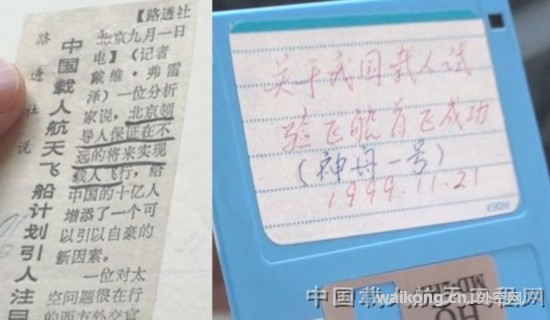 路透社说
中国载人航天飞船计划引人注目
【路透社
北京九月一日
电】（记者
戴维·弗雷
泽）一位分析
家说，北京领
导人保证在不
远的将来实现
载人飞行，给
中国的十亿人
增添了一个可
以引以自豪的
新因素。
一位对太
空问题很在行
的西方外交官
关于我国载人试
验飞船首飞成功
（神舟一号）
1999.11.21